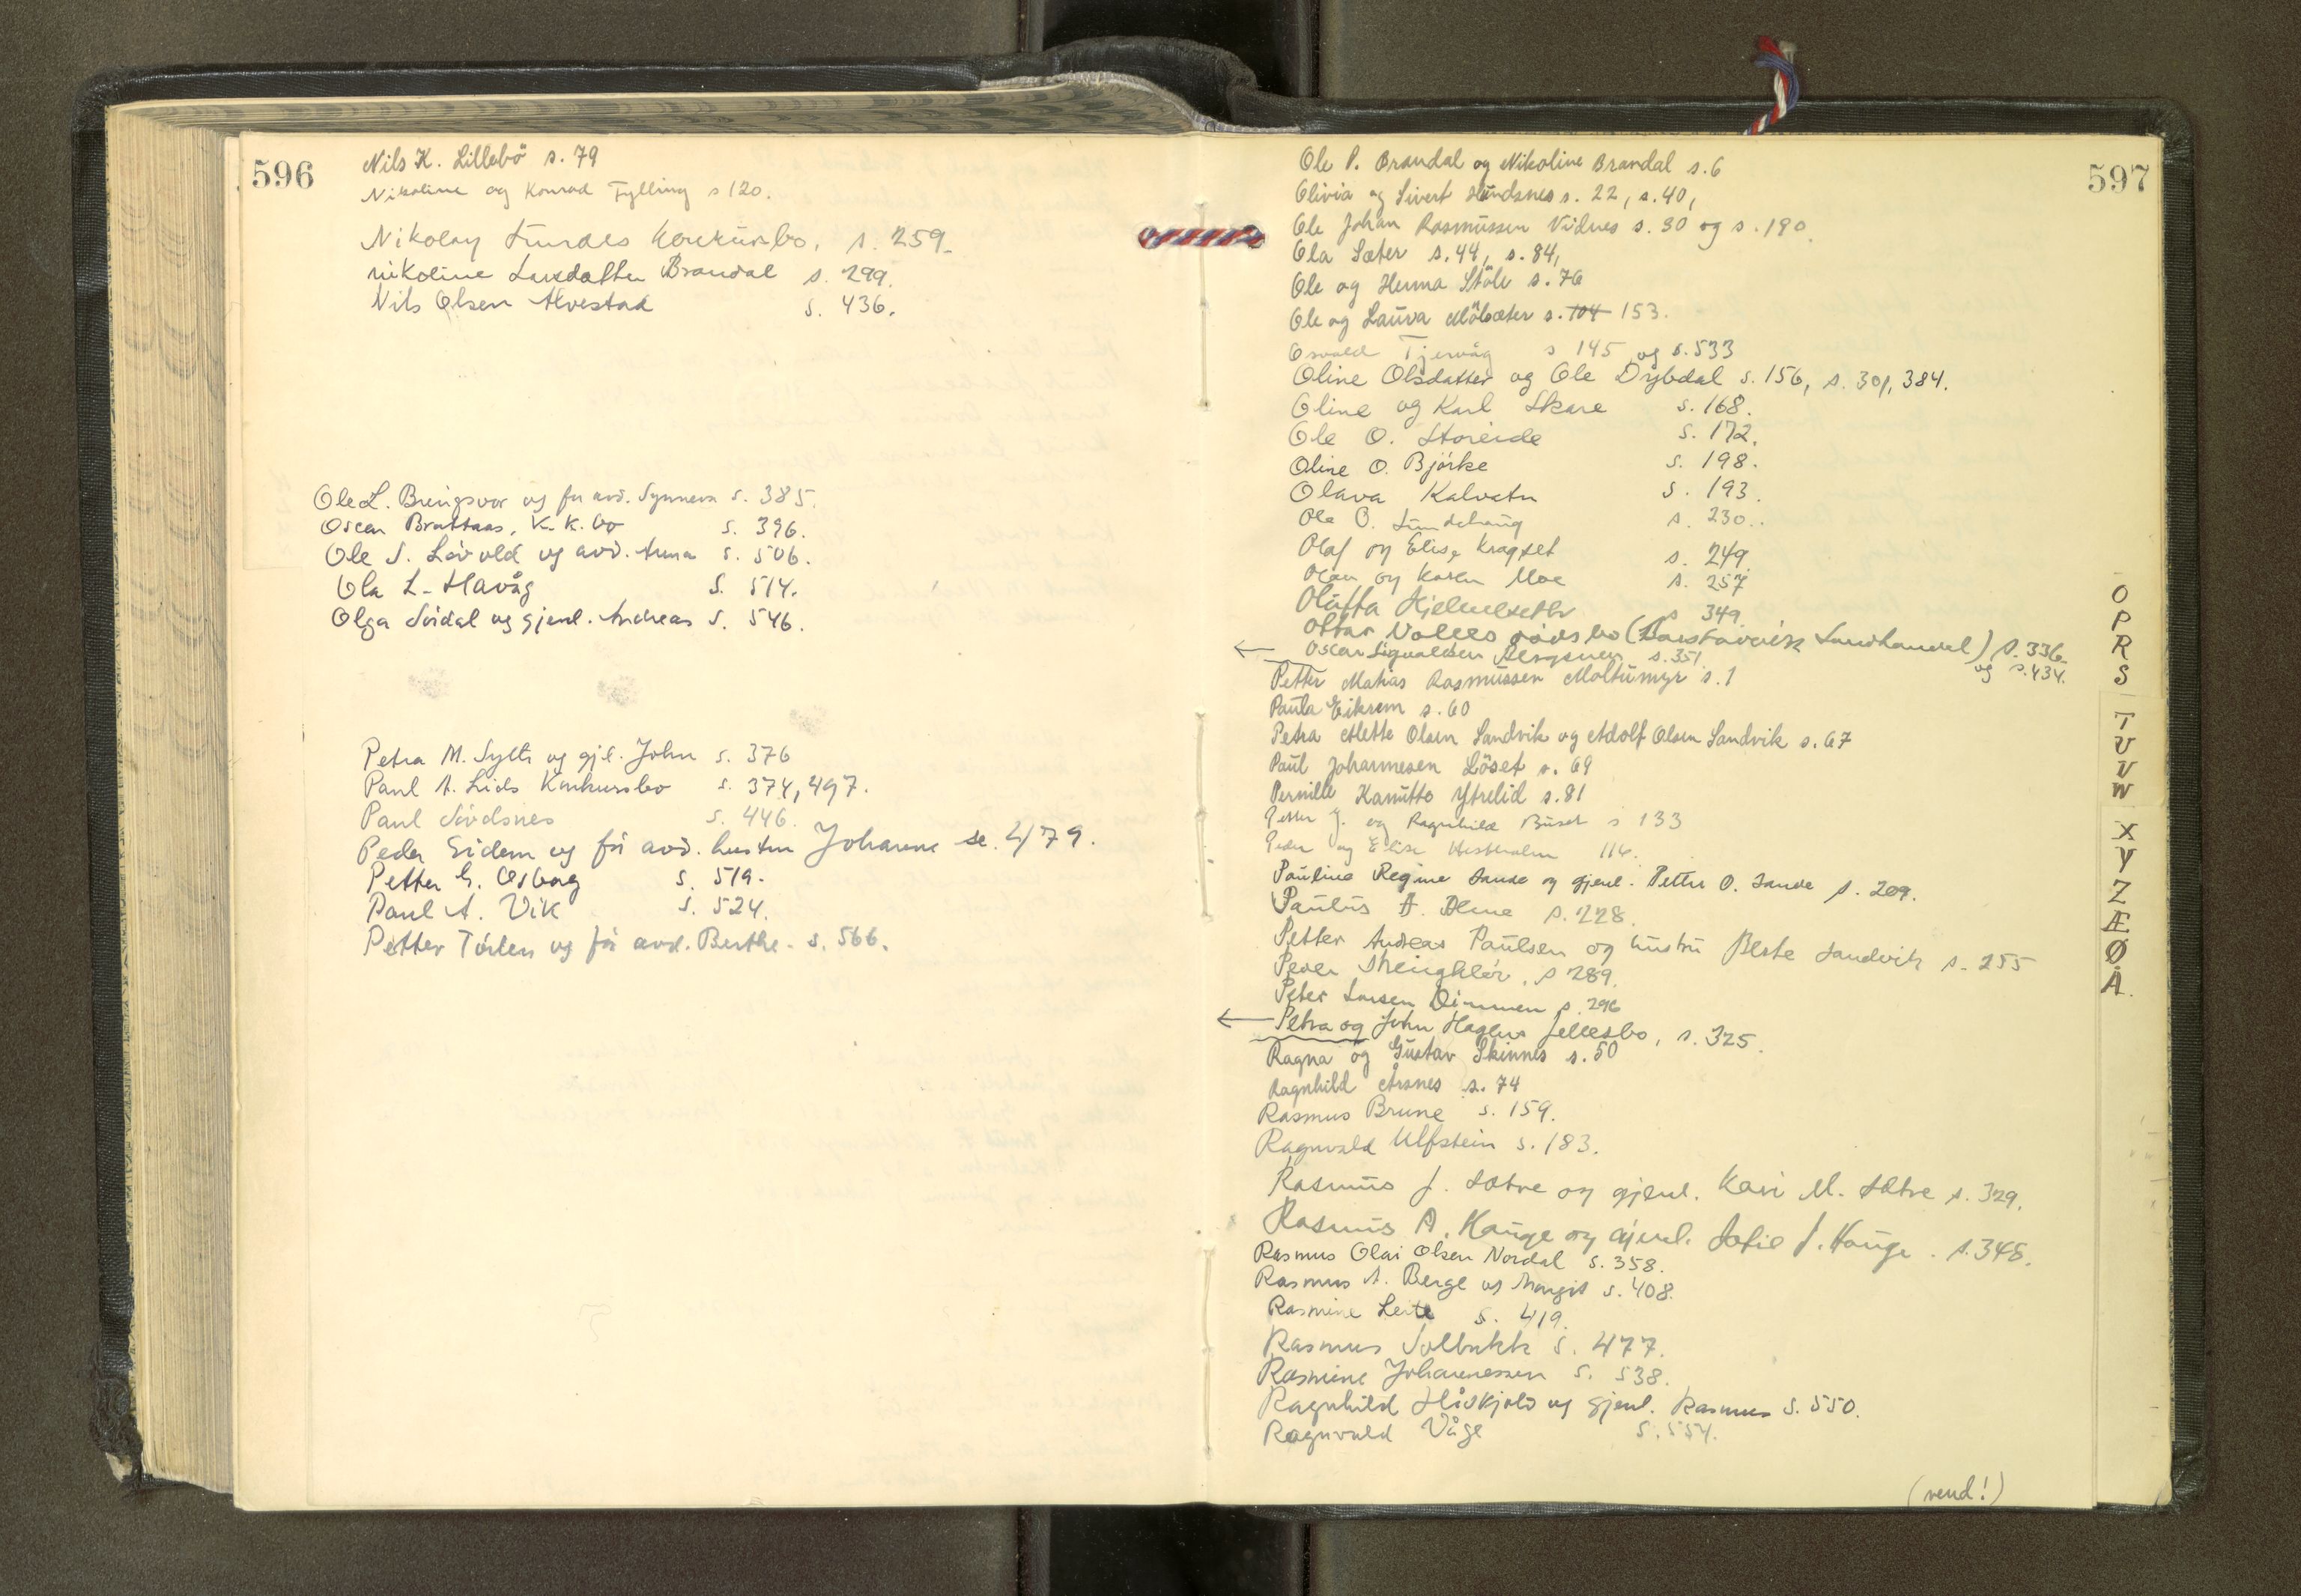 596
Nils K. Lillebö s. 79
Nikoline og Konrad Fylling s 120.
Nikolay Sundes konkursbo. s. 259.
Nikoline Larsdatter Brandal s. 299.
Nils Olsen Alvestad s. 436.
Ole L. Bringsvor og fru avd. Synneva s. 385.
Oscar Brattaas, K.k.bo s. 396.
Ole S. Lövold og avd. Anna s. 506.
Ola L. Havåg s. 514.
Olga Sördal og gjenl. Andreas s. 546.
Petra M. Sylte og gjl. John s. 376
Paul A. Lids Konkursbo s. 374, 497.
Paul Sördsnes s. 446.
Peder Eidem og fö avd. hustru Johanne se. 479.
Petter G. Osborg s. 519.
Paul A. Vik s. 524.
Petter Törlen og fö avd. Berthe. s. 566.
597
Ole P. Brandal og Nikoline Brandal s. 6
Olivia og Sivert Hundsnes s. 22, s. 40,
Ole Johan Rasmussen Vidnes s. 30 og s. 190.
Ola Sæter s. 44, s. 84,
Ole og Herma Stöle s. 76
Ole og Laura Mölsæter s. 104 153.
Osvald Tjervåg s 145 og s. 533
Oline Olsdatter og Ole Dybdal s. 156, s. 301, 384.
Oline og Karl Skare s. 168.
Ole O. Storeide s. 172.
Oline O. Björke s. 198.
Olava Kalvatn s. 193.
Ole O. Sundehaug s. 230.
Olaf og Elise Kragset s. 249.
Olav og Karen Moe s. 257
Olaffa Hjelmeseth s 349.
Ottar Voll s. 336.
og s. 434.
← Oscar Sigvaldsen s. 351
Petter Matias Rasmussen Moltumyr s. 1
Paula Eikrem s. 60
Petra Alette Olsen Sandvik og Adolf Olsen Sandvik s. 67
Paul Johannesen Löset s. 69
Pernille Kanutta Ytrelid s. 81
Petter J. og Ragnhild Buset s 133
Peder og Elise Hestholm 116.
Pauline Regine Sande og gjenl. Petter O. Sande s. 209.
Paulus A. Alme s. 228.
Petter Andreas Paulsen og hustru Beate Sandvik s. 255
Peder s 289.
Peter Larsen Dimmen s. 296
← Petra og John Hagens fellesbo, s. 325.
Ragna og Gustav Skinnes s. 50
Ragnhild Årsnes s. 74
Rasmus Brune s. 159.
Ragnvald Ulfstein s. 183.
Rasmus J. Sætre og gjenl. Kari M. Sætre s. 329.
Rasmus A. Hauge og gjenl. Sofie J. Hauge. s. 348.
Rasmus Olai Olsen Nordal s. 358.
Rasmus A. Berge og Margit s. 408.
Rasmine Leite s. 419.
Rasmus Solbakk s. 477.
Rasmine Johannessen s. 538.
Ragnhild Håskjold og gjenl. Rasmus s. 550.
Ragnvald Våge s. 554.
(vend!)
O
P
R
S
T
U
V
W
X
Y
Z
Æ
Ø
Å.